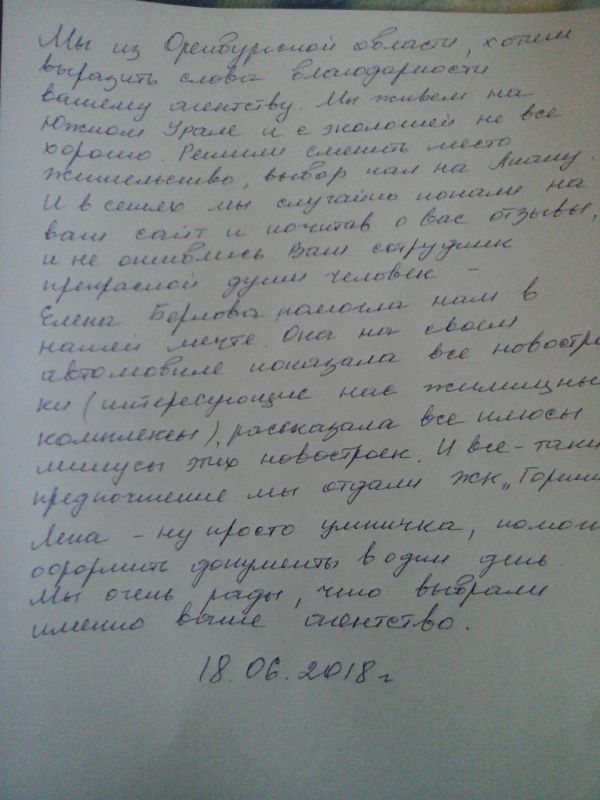 Мы из Оренбургской области, хотим
выразить слова благодарности
вашему агентству. Мы живем на
Южном Урале и с экологией не все
хорошо. Решили сменить место
жительство, выбор пал на Анапу.
И в сетях мы случайно попали на
ваш сайт и почитав о вас отзывы,
и не ошиблись. Ваш сотрудник
прекрасной души человек –
Елена Берлова помогла нам в
нашей мечте. Она на своем
автомобиле показала все новостро
ки (интересующие нас жилищные
комплексы), рассказала все плюсы
минусы этих новостроек. И все-таки
предпочтение мы отдали ЖК „Горгип
Лена – ну просто умничка, помог
оформить документы в один день.
Мы очень рады, что выбрали
именно ваше агентство.
18.06.2018 г